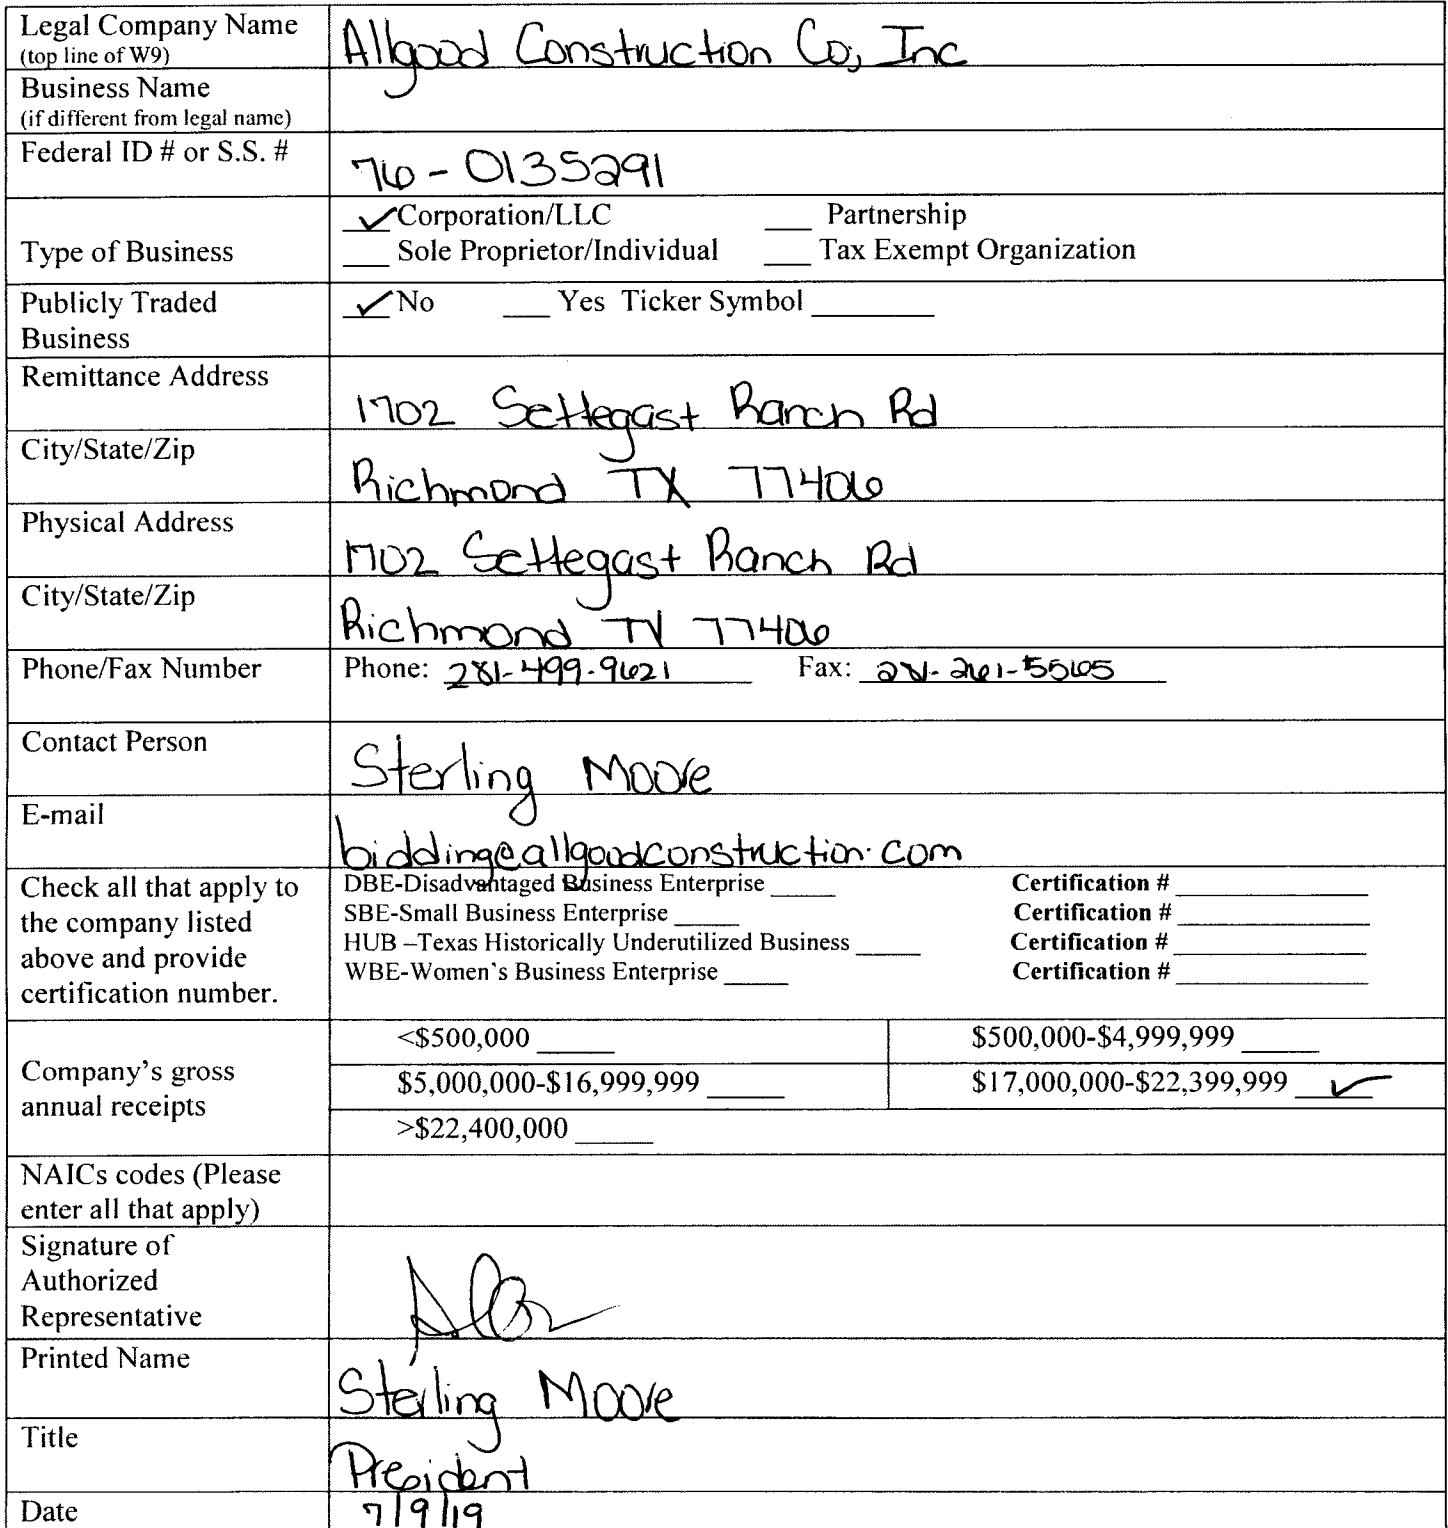 Legal Company Name
(top line of W9)
Allgood Construction Co, Inc
Business Name
(if different from legal name)
Federal ID # or S.S. #
76-0135291
Type of Business
✓ Corporation/LLC ___ Partnership
___ Sole Proprietor/Individual ___ Tax Exempt Organization
Publicly Traded
Business
✓ No ___ Yes Ticker Symbol ___
Remittance Address
1702 Settegast Ranch Rd
City/State/Zip
Richmond TX 77406
Physical Address
1702 Settegast Ranch Rd
City/State/Zip
Richmond TX 77406
Phone/Fax Number
Phone: 281-499-9621 Fax: 281-261-5565
Contact Person
Sterling Moore
E-mail
bidding@allgoodconstruction.com
Check all that apply to
the company listed
above and provide
certification number.
DBE-Disadvantaged Business Enterprise ___ Certification # ___
SBE-Small Business Enterprise ___ Certification # ___
HUB –Texas Historically Underutilized Business ___ Certification # ___
WBE-Women's Business Enterprise ___ Certification # ___
Company's gross
annual receipts
<$500,000 ___ $500,000-$4,999,999 ___
$5,000,000-$16,999,999 ___ $17,000,000-$22,399,999 ✓
>$22,400,000 ___
NAICs codes (Please
enter all that apply)
Signature of
Authorized
Representative
Printed Name
Sterling Moore
Title
President
Date
7/9/19